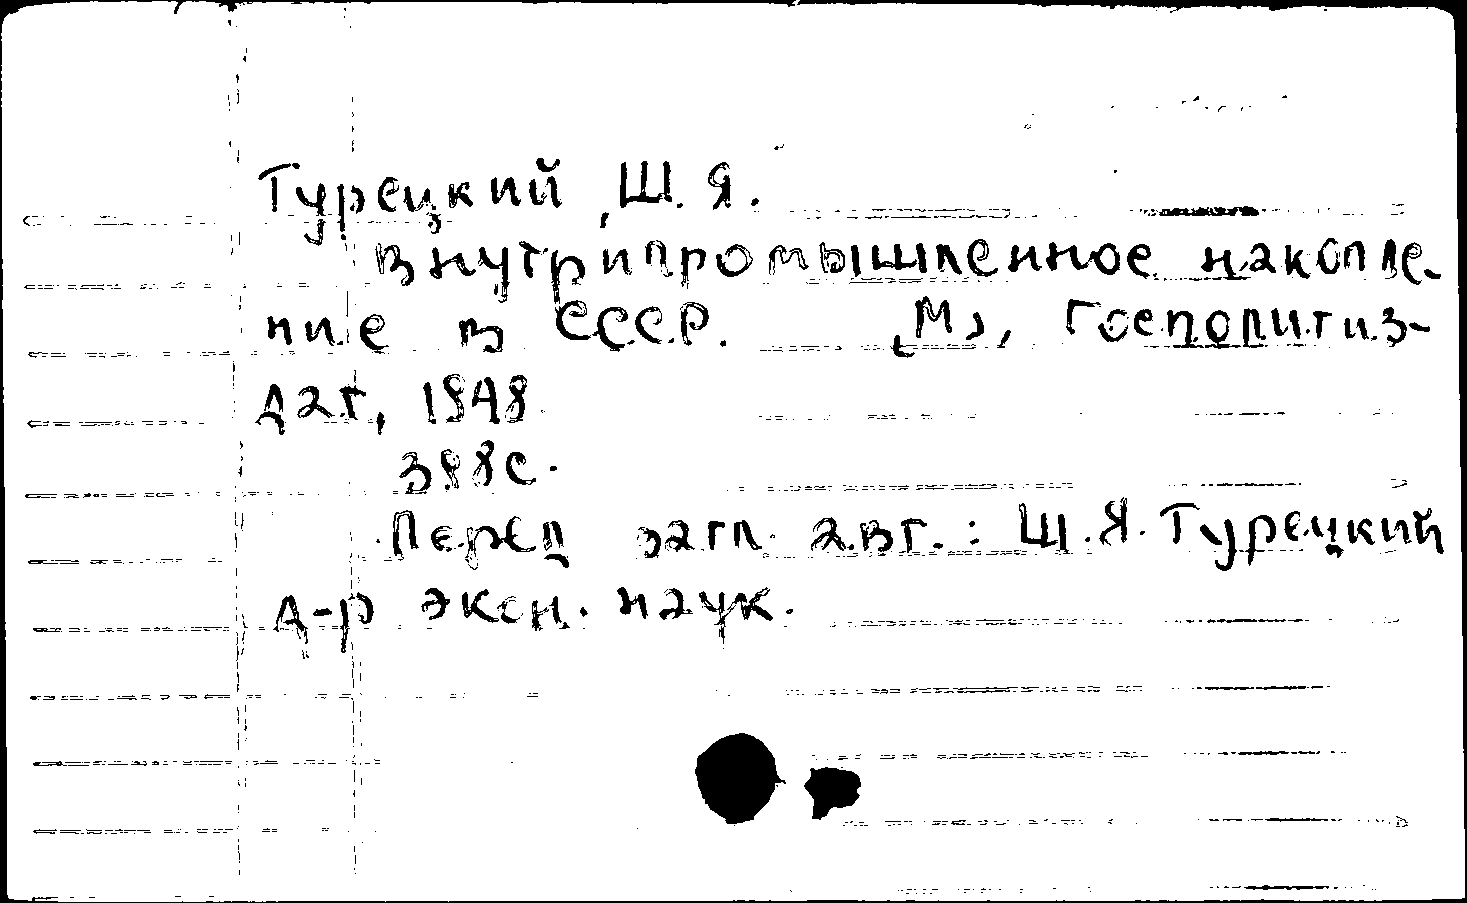 Турецкий, Ш. Я.
Внутрипромышленное накопле-
ние в СССР. [М], Госполитиз-
дат, 1948
388 с.
Перед загл. авт.: Ш. Я. Турецкий
д-р экон. наук.